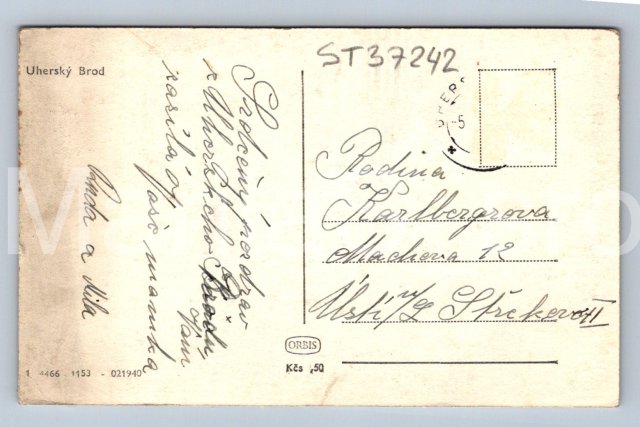 Uherský Brod
ST37242
UHERS
-5
Srdečný pozdrav
z Uherského Brodu
Vám
zasílá
Vaše mamka
a Mila
Rodina
Karlbergrova
Machova 12
Ústí n/L Střekov II
ORBIS
Kčs ,50
1 4466 1153 - 021940